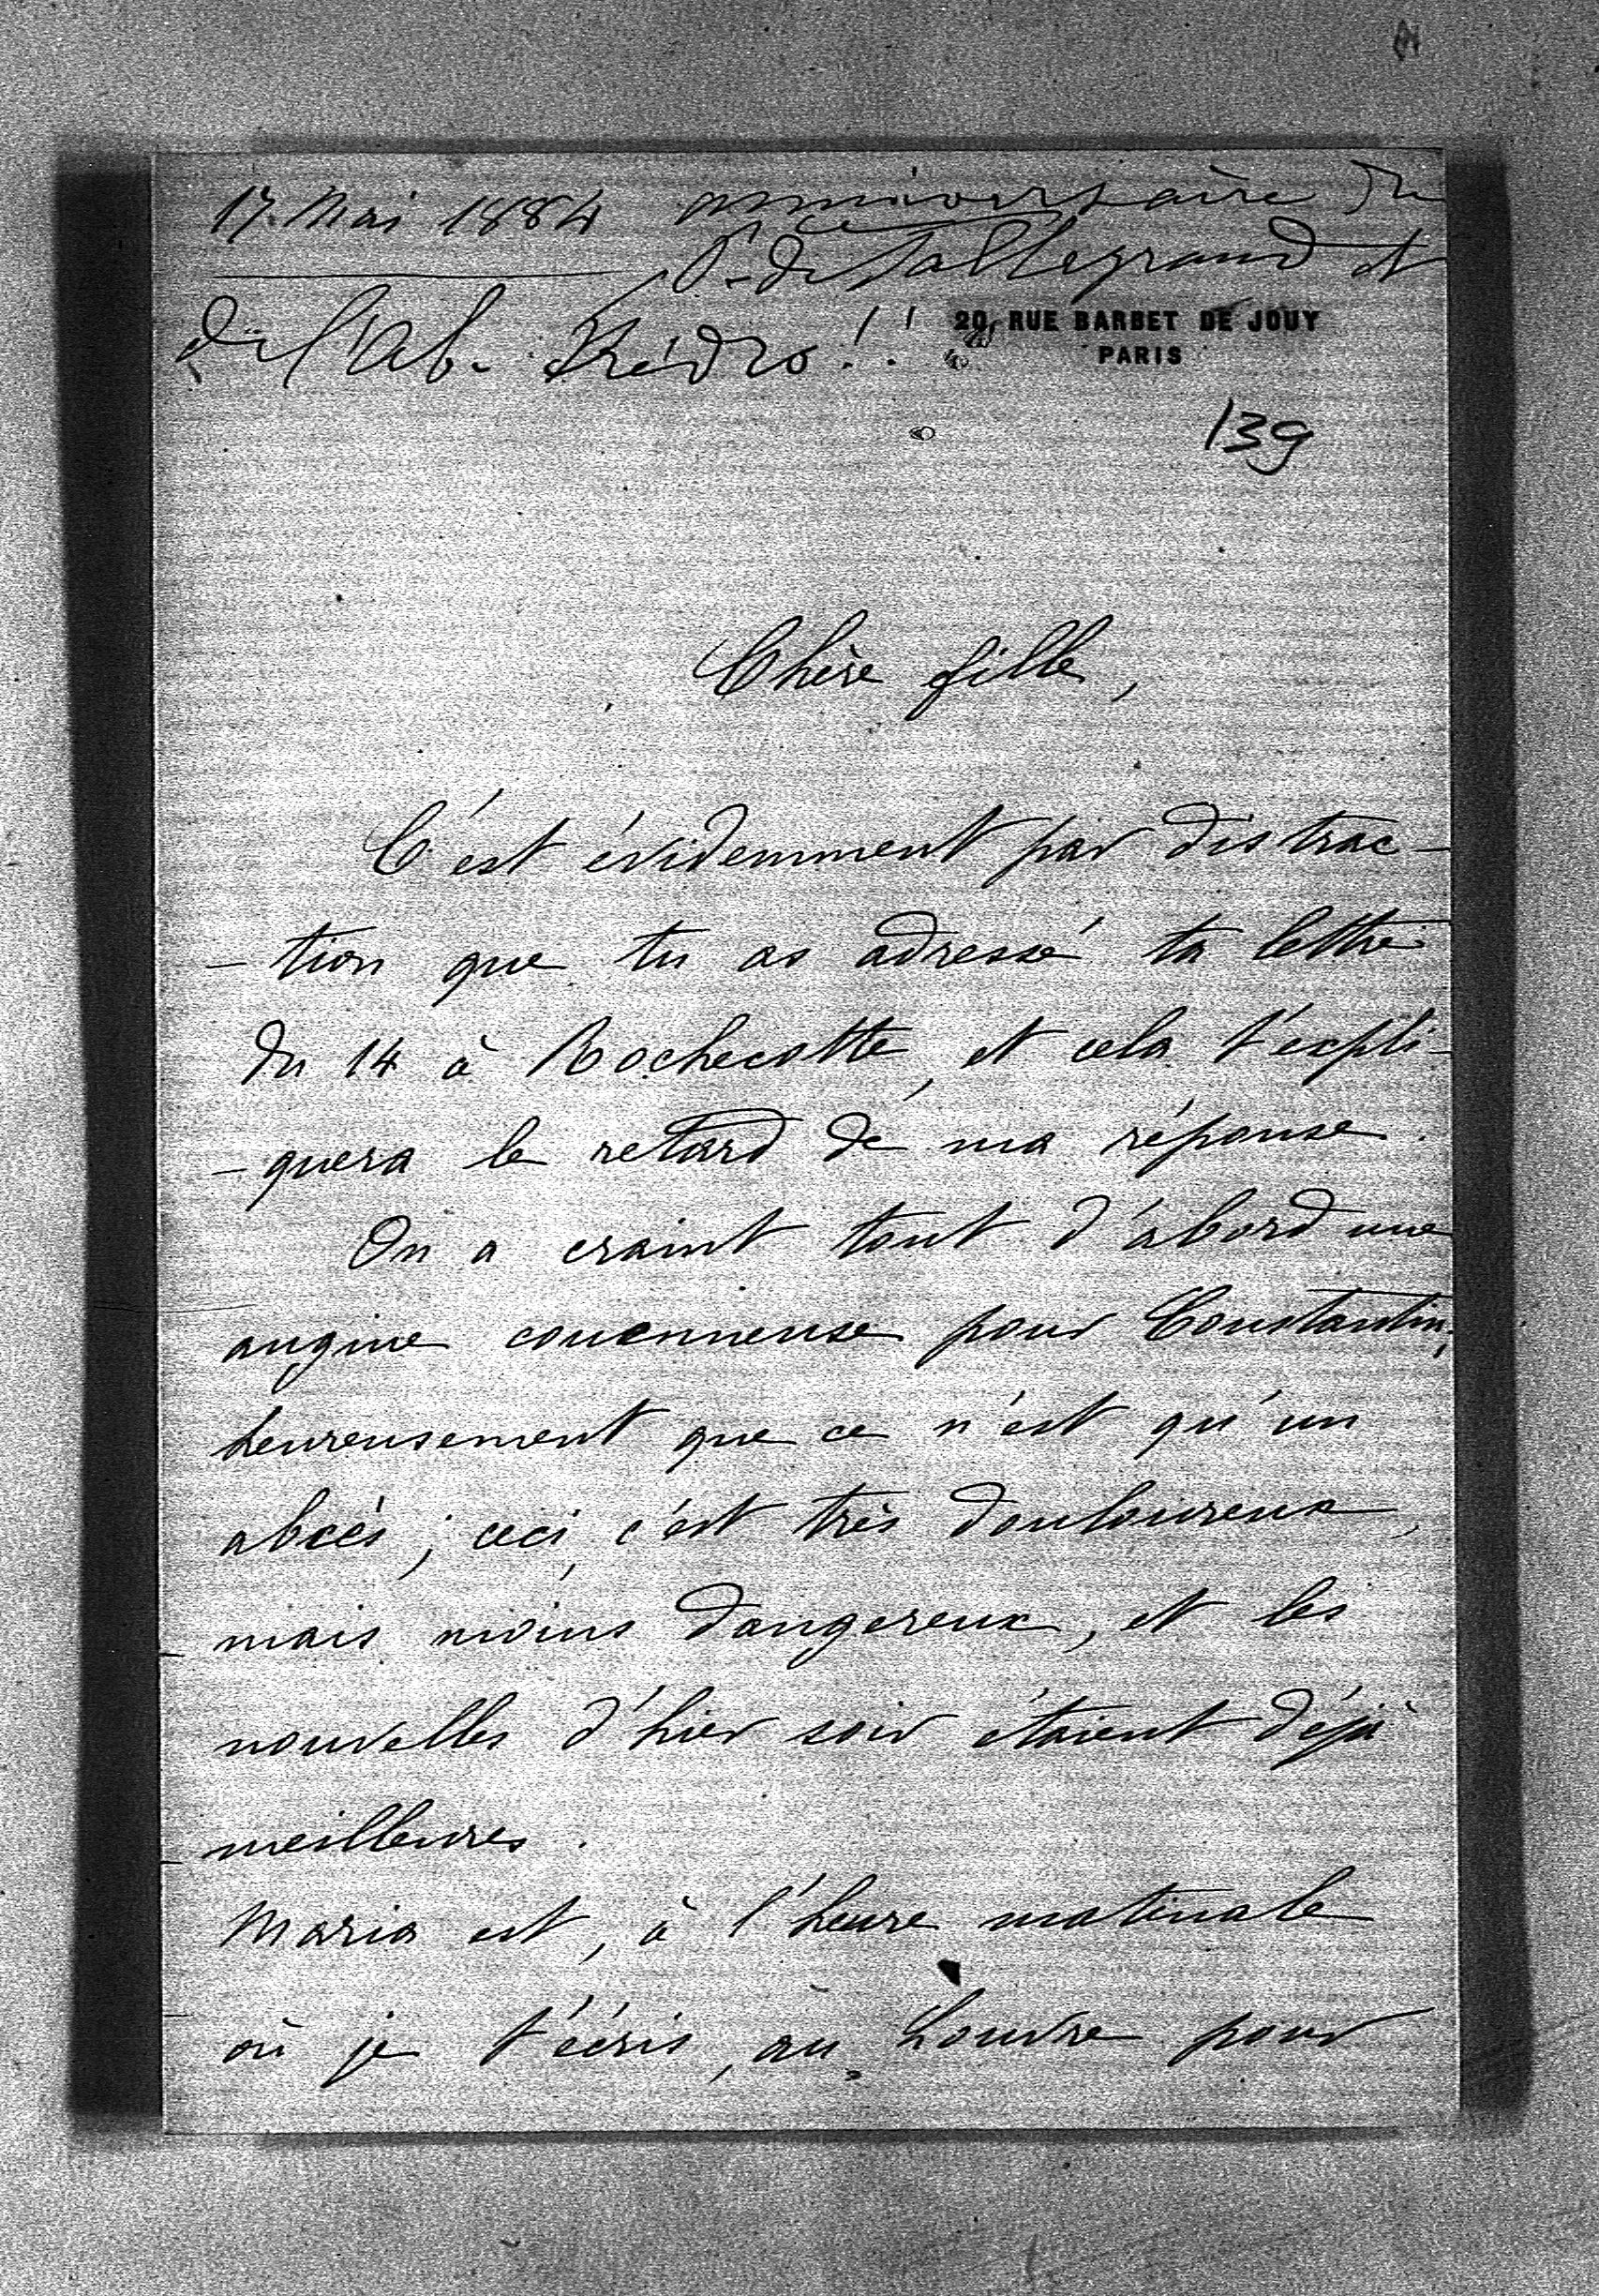 17. Mai 1884 anniversaire du
Pce de Talleyrand et
de l'Ab. Trédro !!
20, RUE BARBET DE JOUY
PARIS
139
Chère fille,
C'est évidemment par distrac-
-tion que tu as adressé ta lettre
du 14 à Rochecotte, et cela t'expli-
-quera le retard de ma réponse.
On a craint tout d'abord une
angine couenneuse pour Constantin,
heureusement que ce n'est qu'un
abcès ; ceci, c'est très douloureux,
mais moins dangereux, et les
nouvelles d'hier soir étaient déjà
meilleures.
Maria est, à l'heure matinale
où je t'écris, au Louvre pour